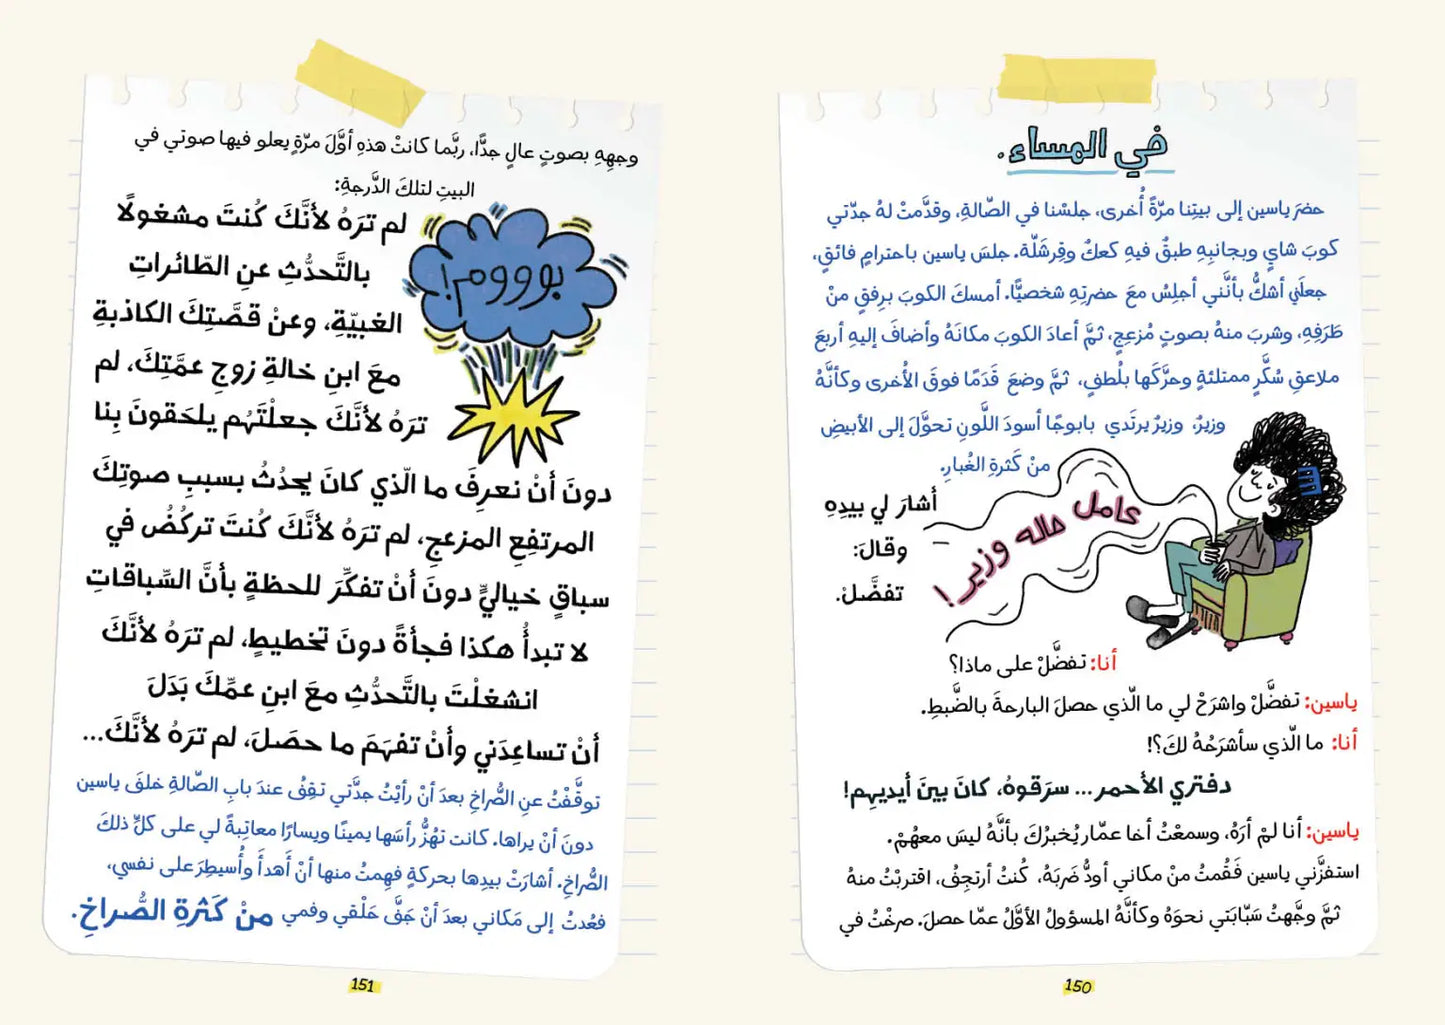 في المساء.
حضرَ ياسين إلى بيتِنا مرّةً أُخرى، جلسْنا في الصّالةِ، وقدَّمتْ لهُ جدّتي
كوبَ شايٍ وبجانبِهِ طبقٌ فيهِ كعكٌ وقِرشَلّة. جلسَ ياسين باحترامٍ فائقٍ،
جعلَني أشكُّ بأنَّني أجلِسُ معَ حضرتِهِ شخصيًّا. أمسكَ الكوبَ برِفقٍ منْ
طَرَفِهِ، وشربَ منهُ بصوتٍ مُزعِجٍ، ثمَّ أعادَ الكوبَ مكانَهُ وأضافَ إليهِ أربعَ
ملاعقِ سُكَّرٍ ممتلئةٍ وحرَّكَها بلُطفٍ، ثمَّ وضعَ قَدَمًا فوقَ الأُخرى وكأنَّهُ
وزيرٌ، وزيرٌ يرتَدي بابوجًا أسودَ اللَّونِ تحوَّلَ إلى الأبيضِ
منْ كَثرةِ الغُبارِ.
عامل حاله وزير!
أشارَ لي بيدِهِ
وقالَ:
تفضَّلْ.
أنا: تفضَّلْ على ماذا؟
ياسين: تفضَّلْ واشرَحْ لي ما الّذي حصلَ البارحةَ بالضَّبطِ.
أنا: ما الّذي سأشرَحُهُ لكَ؟!
دفتري الأحمر... سرَقوهُ، كانَ بينَ أيديهِم!
ياسين: أنا لمْ أرَهُ، وسمعْتُ أخا عمّار يُخبرُكَ بأنَّهُ ليسَ معهُمْ.
استفزَّني ياسين فَقُمتُ منْ مكاني أودُّ ضَربَهُ، كُنتُ أرتجِفُ، اقتربْتُ منهُ
ثمَّ وجَّهتُ سَبّابَتي نحوَهُ وكأنَّهُ المسؤولُ الأوَّلُ عمّا حصلَ. صرخْتُ في
150
وجهِهِ بصوتٍ عالٍ جدًّا، ربَّما كانتْ هذهِ أوَّلَ مرّةٍ يعلو فيها صوتي في
البيتِ لتلكَ الدَّرجةِ:
لم ترَهُ لأنَّكَ كُنتَ مشغولًا
بالتَّحدُّثِ عنِ الطّائراتِ
الغبيّةِ، وعنْ قصَّتِكَ الكاذبةِ
معَ ابنِ خالةِ زوجِ عمَّتِكَ، لم
ترَهُ لأنَّكَ جعلْتَهُم يلحَقونَ بِنا
بوووم!
دونَ أنْ نعرِفَ ما الّذي كانَ يحدُثُ بسببِ صوتِكَ
المرتفِعِ المزعجِ، لم ترَهُ لأنَّكَ كُنتَ تركُضُ في
سباقٍ خياليٍّ دونَ أنْ تفكِّرَ للحظةٍ بأنَّ السِّباقاتِ
لا تبدأُ هكذا فجأةً دونَ تخطيطٍ، لم ترَهُ لأنَّكَ
انشغلْتَ بالتَّحدُّثِ معَ ابنِ عمِّكَ بَدَلَ
أنْ تساعِدَني وأنْ تفهَمَ ما حصَلَ، لم ترَهُ لأنَّكَ...
توقَّفْتُ عنِ الصُّراخِ بعدَ أنْ رأيْتُ جدَّتي تقِفُ عندَ بابِ الصّالةِ خلفَ ياسين
دونَ أنْ يراها. كانت تهُزُّ رأسَها يمينًا ويسارًا معاتِبةً لي على كلِّ ذلكَ
الصُّراخِ. أشارَتْ بيدِها بحركةٍ فهِمتُ منها أنْ أهدأَ وأُسيطِرَ على نفسي،
فعُدتُ إلى مَكاني بعدَ أنْ جَفَّ حَلْقي وفمي منْ كَثرةِ الصُّراخِ.
151